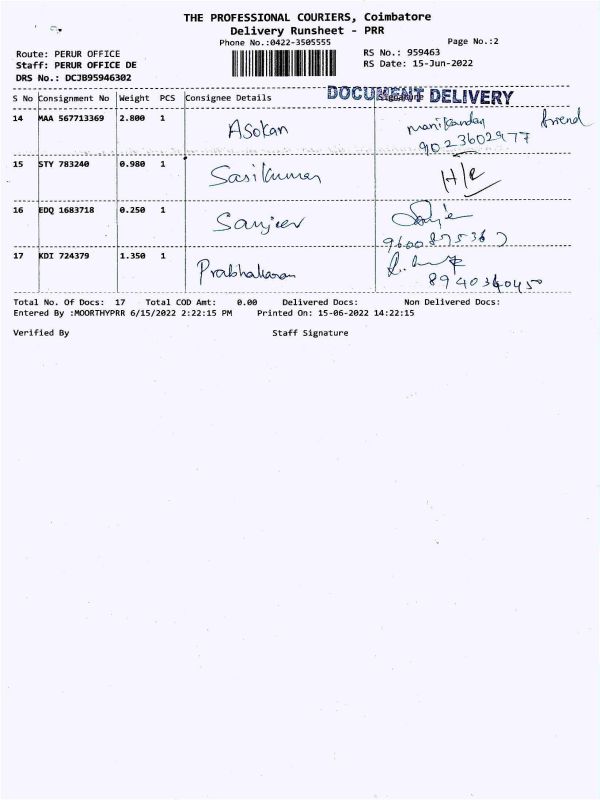 THE PROFESSIONAL COURIERS, Coimbatore
Delivery Runsheet - PRR
Phone No.:0422-3505555 Page No.:2
Route: PERUR OFFICE RS No.: 959463
Staff: PERUR OFFICE DE RS Date: 15-Jun-2022
DRS No.: DCJB95946302
DOCUMENT DELIVERY
S No Consignment No Weight PCS Consignee Details Signature
14 MAA 567713369 2.800 1 Asokan manikandan friend
9023602977
15 STY 783240 0.980 1 Sasikumar
16 EDQ 1683718 0.250 1 Sanjeev
17 KDI 724379 1.350 1 Prabhakaran
Total No. Of Docs: 17 Total COD Amt: 0.00 Delivered Docs: Non Delivered Docs:
Entered By :MOORTHYPRR 6/15/2022 2:22:15 PM Printed On: 15-06-2022 14:22:15
Verified By Staff Signature